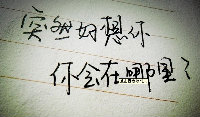 突然好想你
你会在哪里？